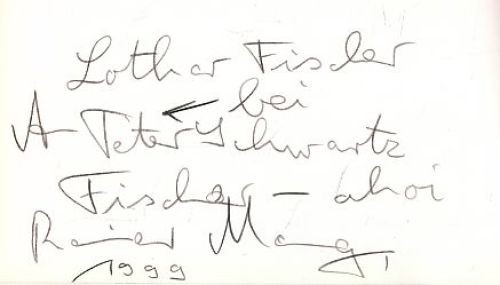 Lothar Fischer
← bei
A Peter Schwartz
Fischer – ahoi
Rainer Mang
1999